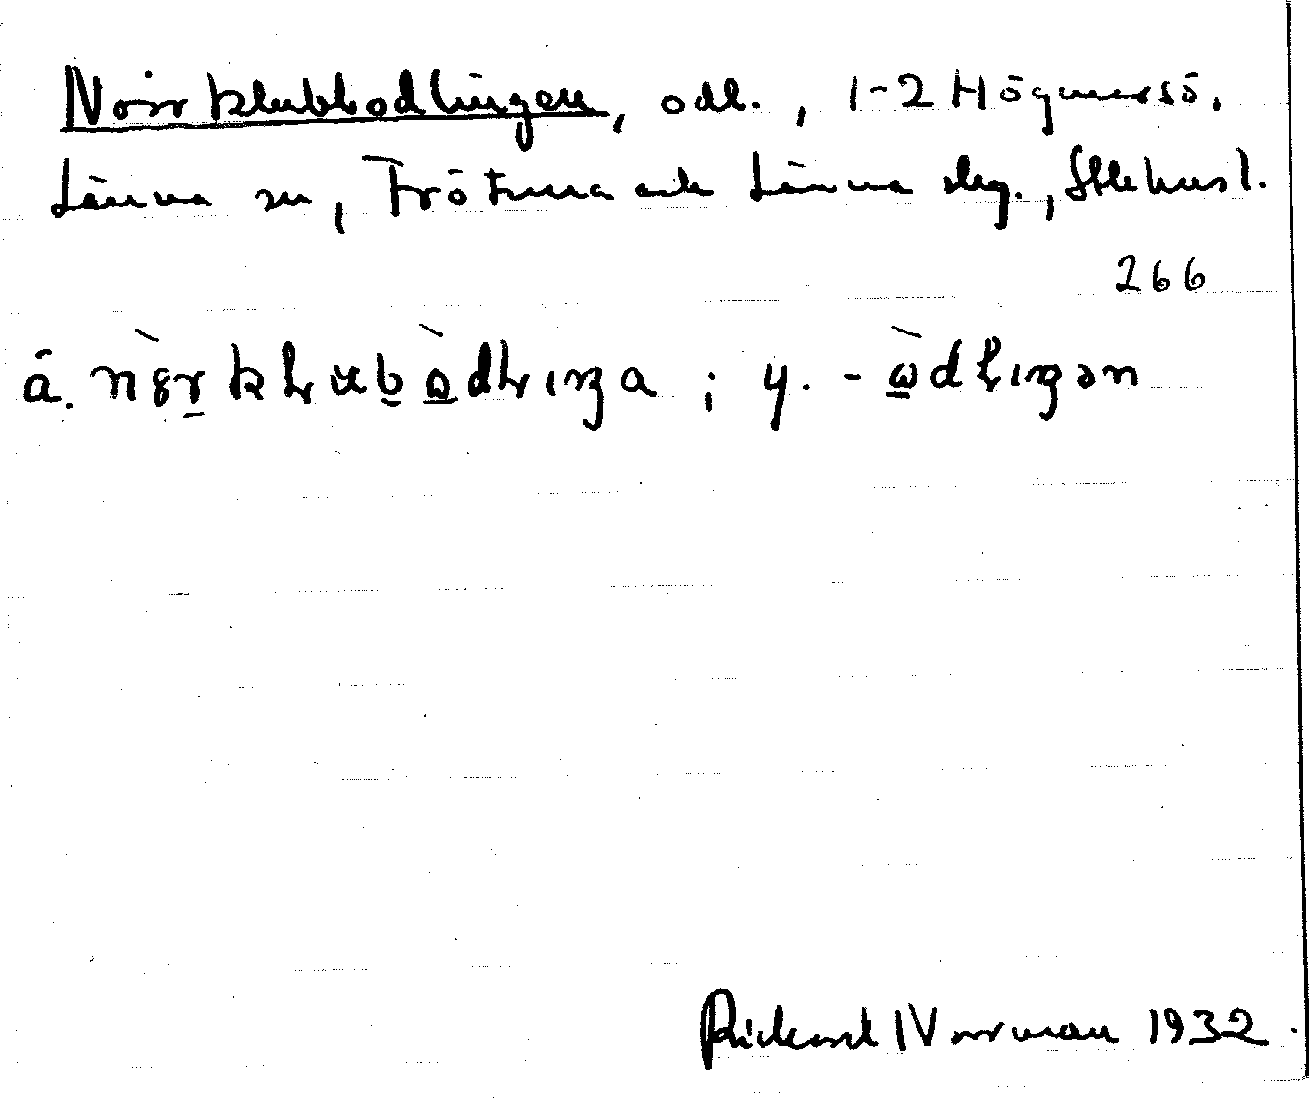 Norrklubbodlingen, odl., 1-2 Högmarsö,
Länna sn, Frötuna och Länna skg., Sthlms l.
266
å. nørklubodlıŋa ; y. - odlıŋən
Rickard Norrman 1932.